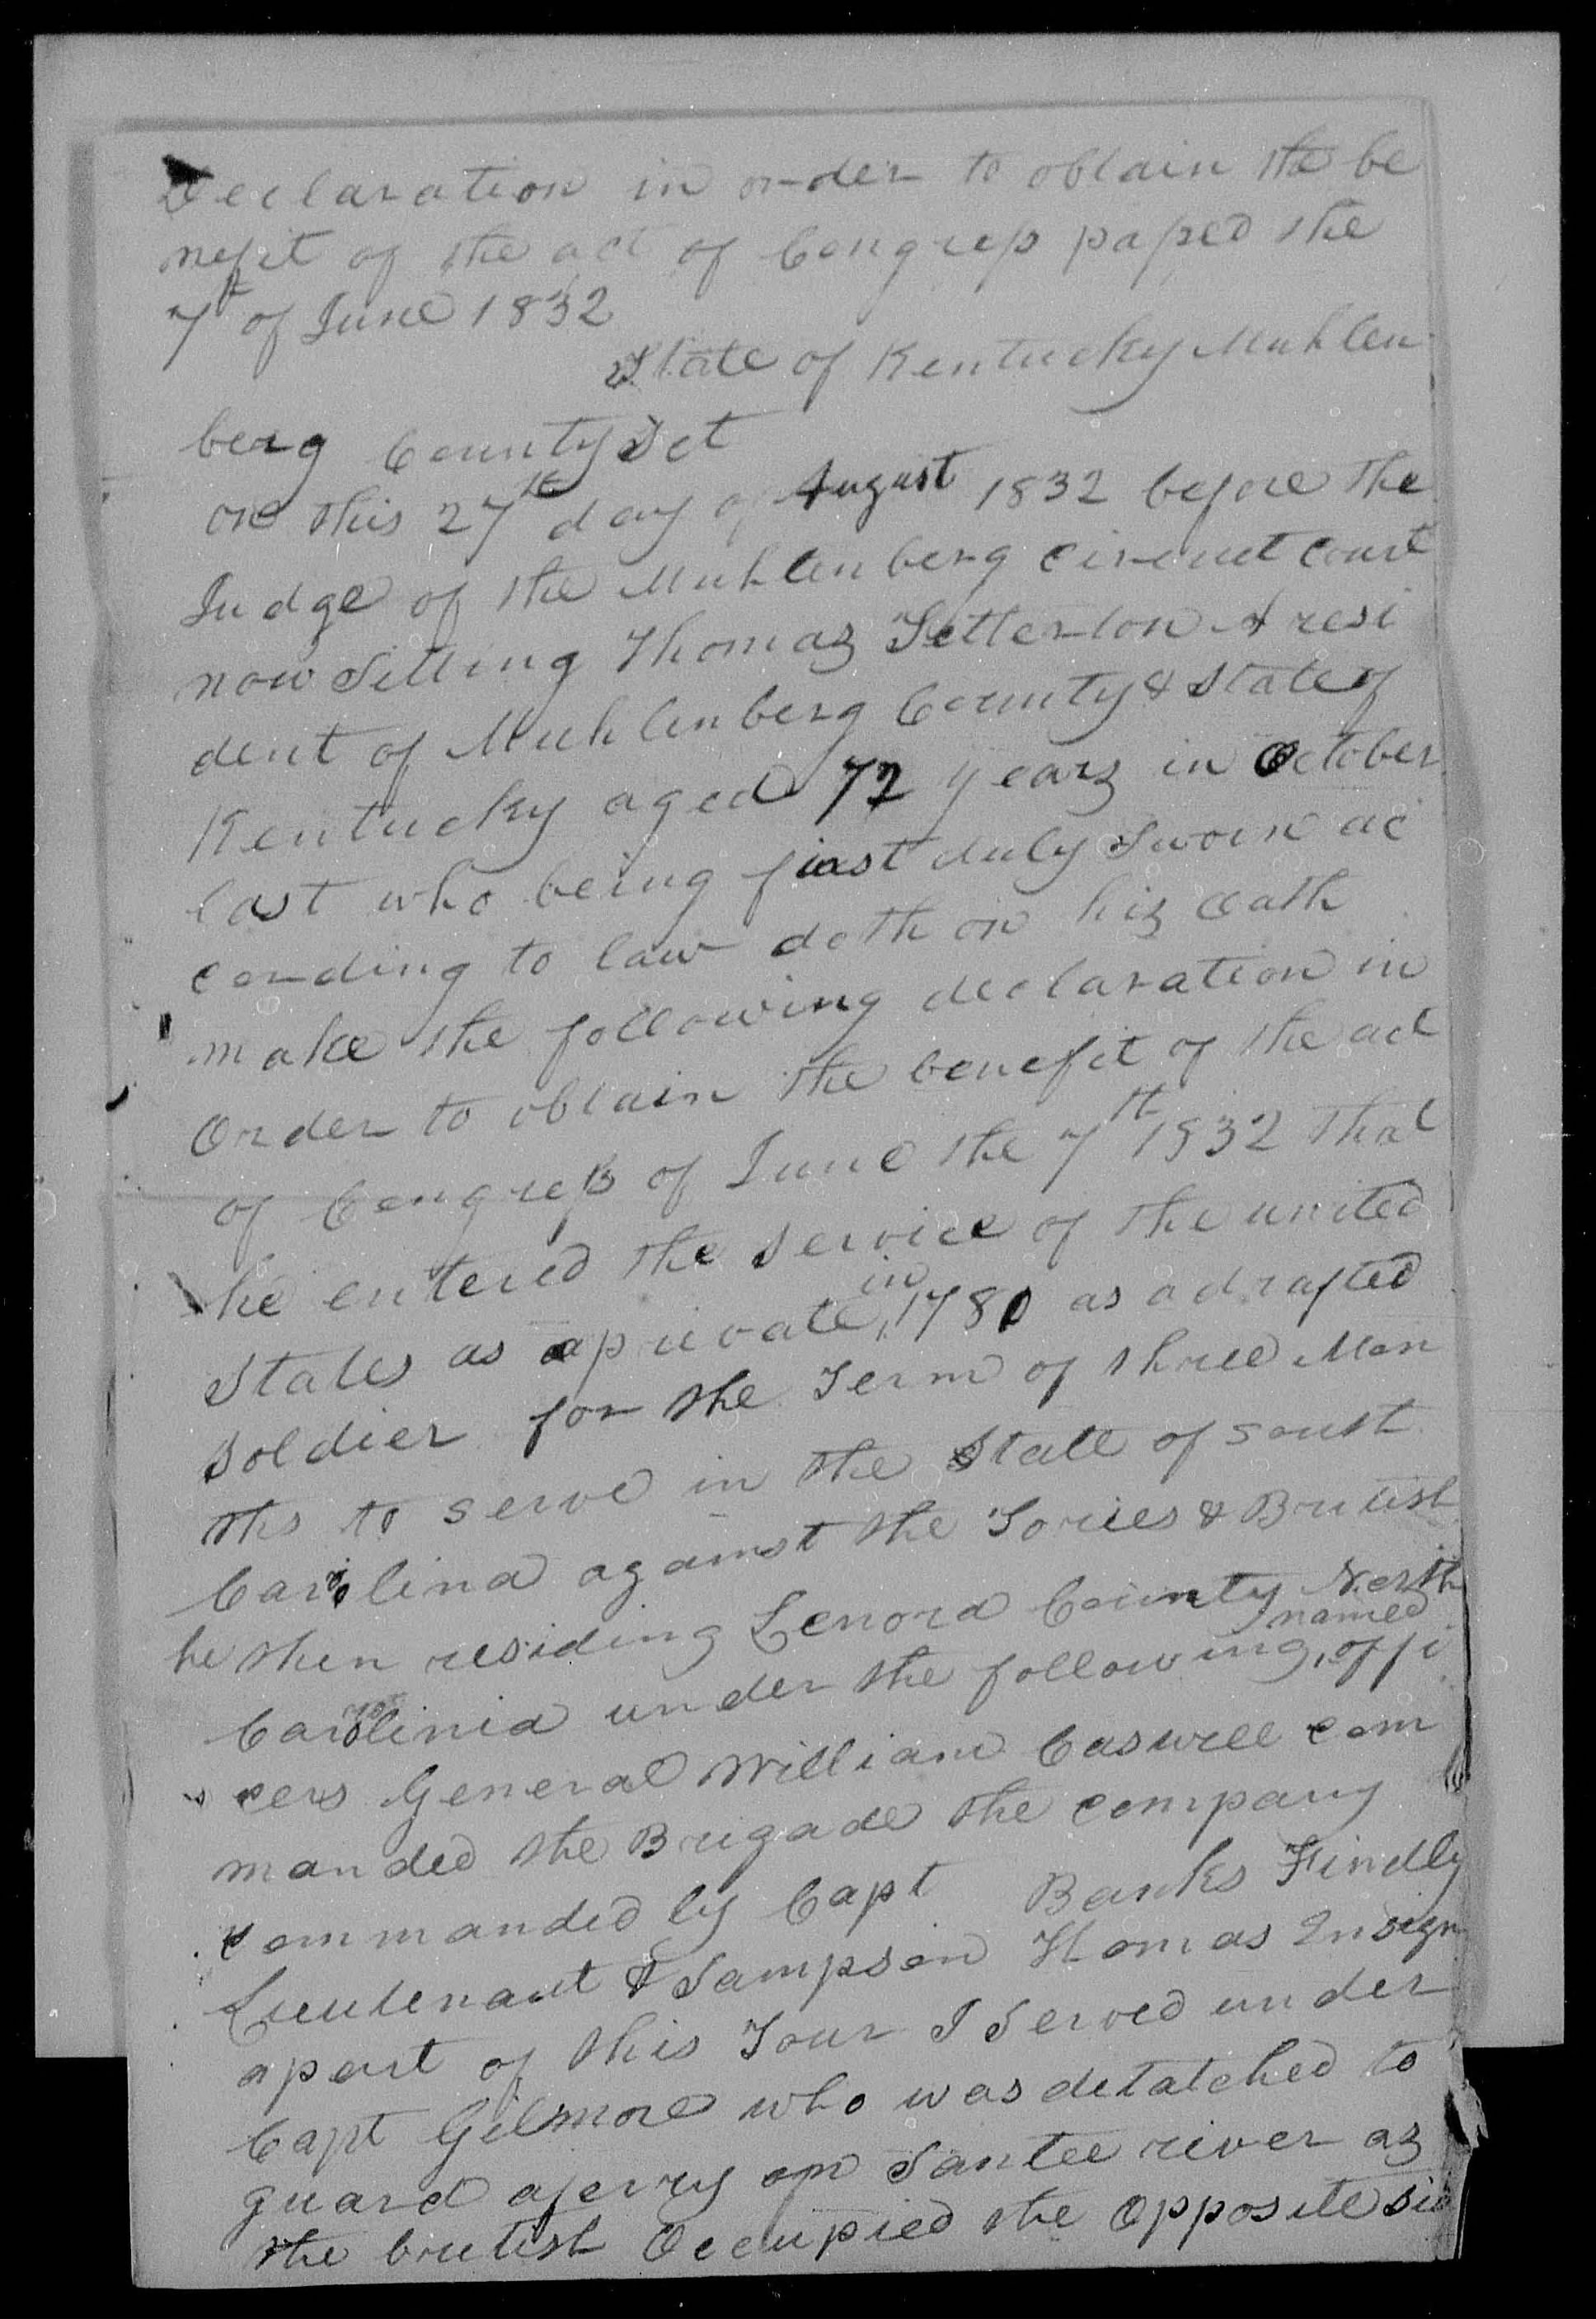 Declaration in order to obtain the be
nefit of the act of Congress passed the
7th of June 1832
State of Kentucky Muhlen
berg County Sct
on this 27th day of August 1832 before the
Judge of the Muhlenberg circuit court
now Sitting Thomas Setterton A resi
dent of Muhlenberg County & State of
Kentucky aged 72 years in October
last who being first duly Sworn ac
cording to law doth on his oath
make the following declaration in
Order to obtain the benefit of the act
of Congress of June the 7th 1832 That
he entered the Service of the united
States as a private in 1780 as a drafted
Soldier for the Term of three Mon
ths to serve in the State of South
Carolina against the Tories & British
he then residing Lenord County North
Carolinia under the following named offi
cers General William Caswell com
manded the Brigade the company
commanded by Capt Banks Findly
Lieutenant & Sampson Thomas Insign
a part of this Tour I Served under
Capt Gilmore who was detatched to
guard a ferry on Santee river as
the british Occupied the Opposite sid